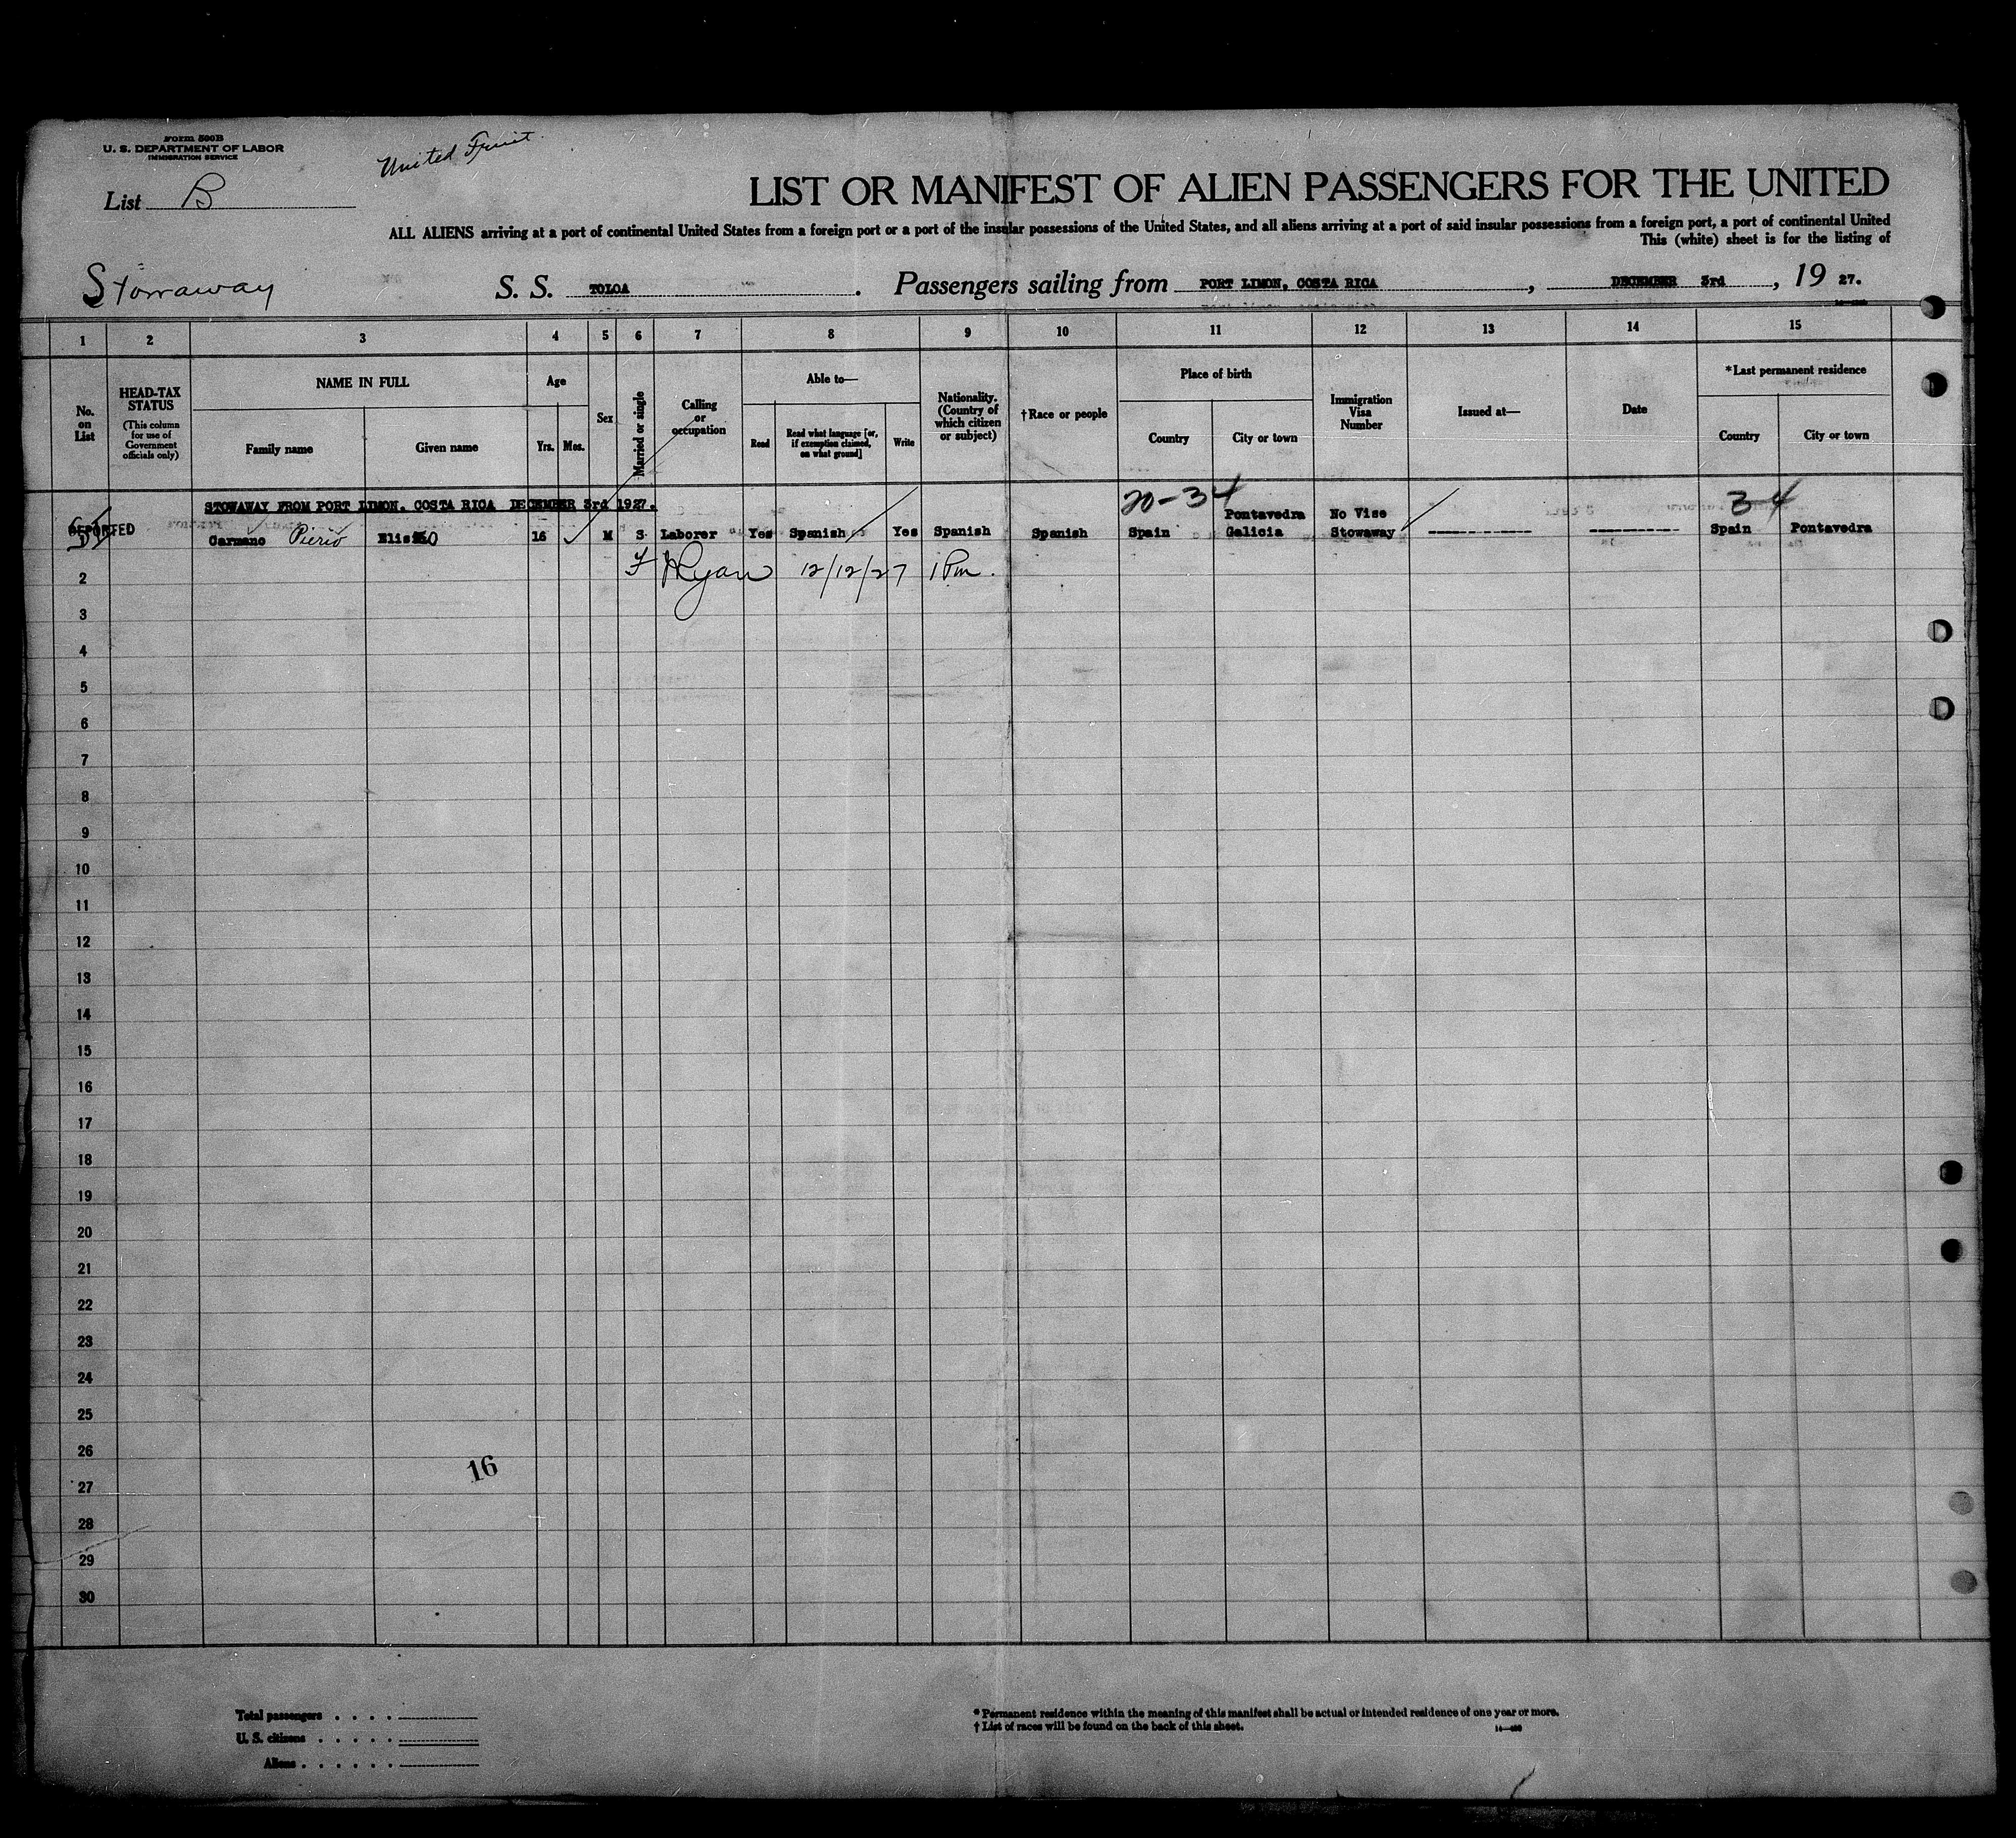 Form 500B
U. S. DEPARTMENT OF LABOR
IMMIGRATION SERVICE
United Fruit
List B
LIST OR MANIFEST OF ALIEN PASSENGERS FOR THE UNITED
ALL ALIENS arriving at a port of continental United States from a foreign port or a port of the insular possessions of the United States, and all aliens arriving at a port of said insular possessions from a foreign port, a port of continental United
This (white) sheet is for the listing of
Stowaway S. S. TOLOA. Passengers sailing from PORT LIMON, COSTA RICA, DECEMBER 3rd, 19 27.
1 2 3 4 5 6 7 8 9 10 11 12 13 14 15
No. on List
HEAD-TAX STATUS
(This column for use of Government officials only)
NAME IN FULL
Family name Given name
Age
Yrs. Mos.
Sex
Married or single
Calling or occupation
Able to—
Read Read what language [or, if exemption claimed, on what ground] Write
Nationality. (Country of which citizen or subject)
†Race or people
Place of birth
Country City or town
Immigration Visa Number
Issued at—
Date
*Last permanent residence
Country City or town
STOWAWAY FROM PORT LIMON. COSTA RICA DECEMBER 3rd 1927.
20-34 34
Pontavedra No Vise
Carmano Pierio 16 M S Laborer Yes Spanish Yes Spanish Spanish Spain Galicia Stowaway Spain Pontavedra
2 F Ryan 12/12/27 1 Pm.
3
4
5
6
7
8
9
10
11
12
13
14
15
16
17
18
19
20
21
22
23
24
25
26
16
27
28
29
30
Total passengers . . . .
U. S. citizens . . . . .
Aliens . . . . . .
* Permanent residence within the meaning of this manifest shall be actual or intended residence of one year or more.
† List of races will be found on the back of this sheet.